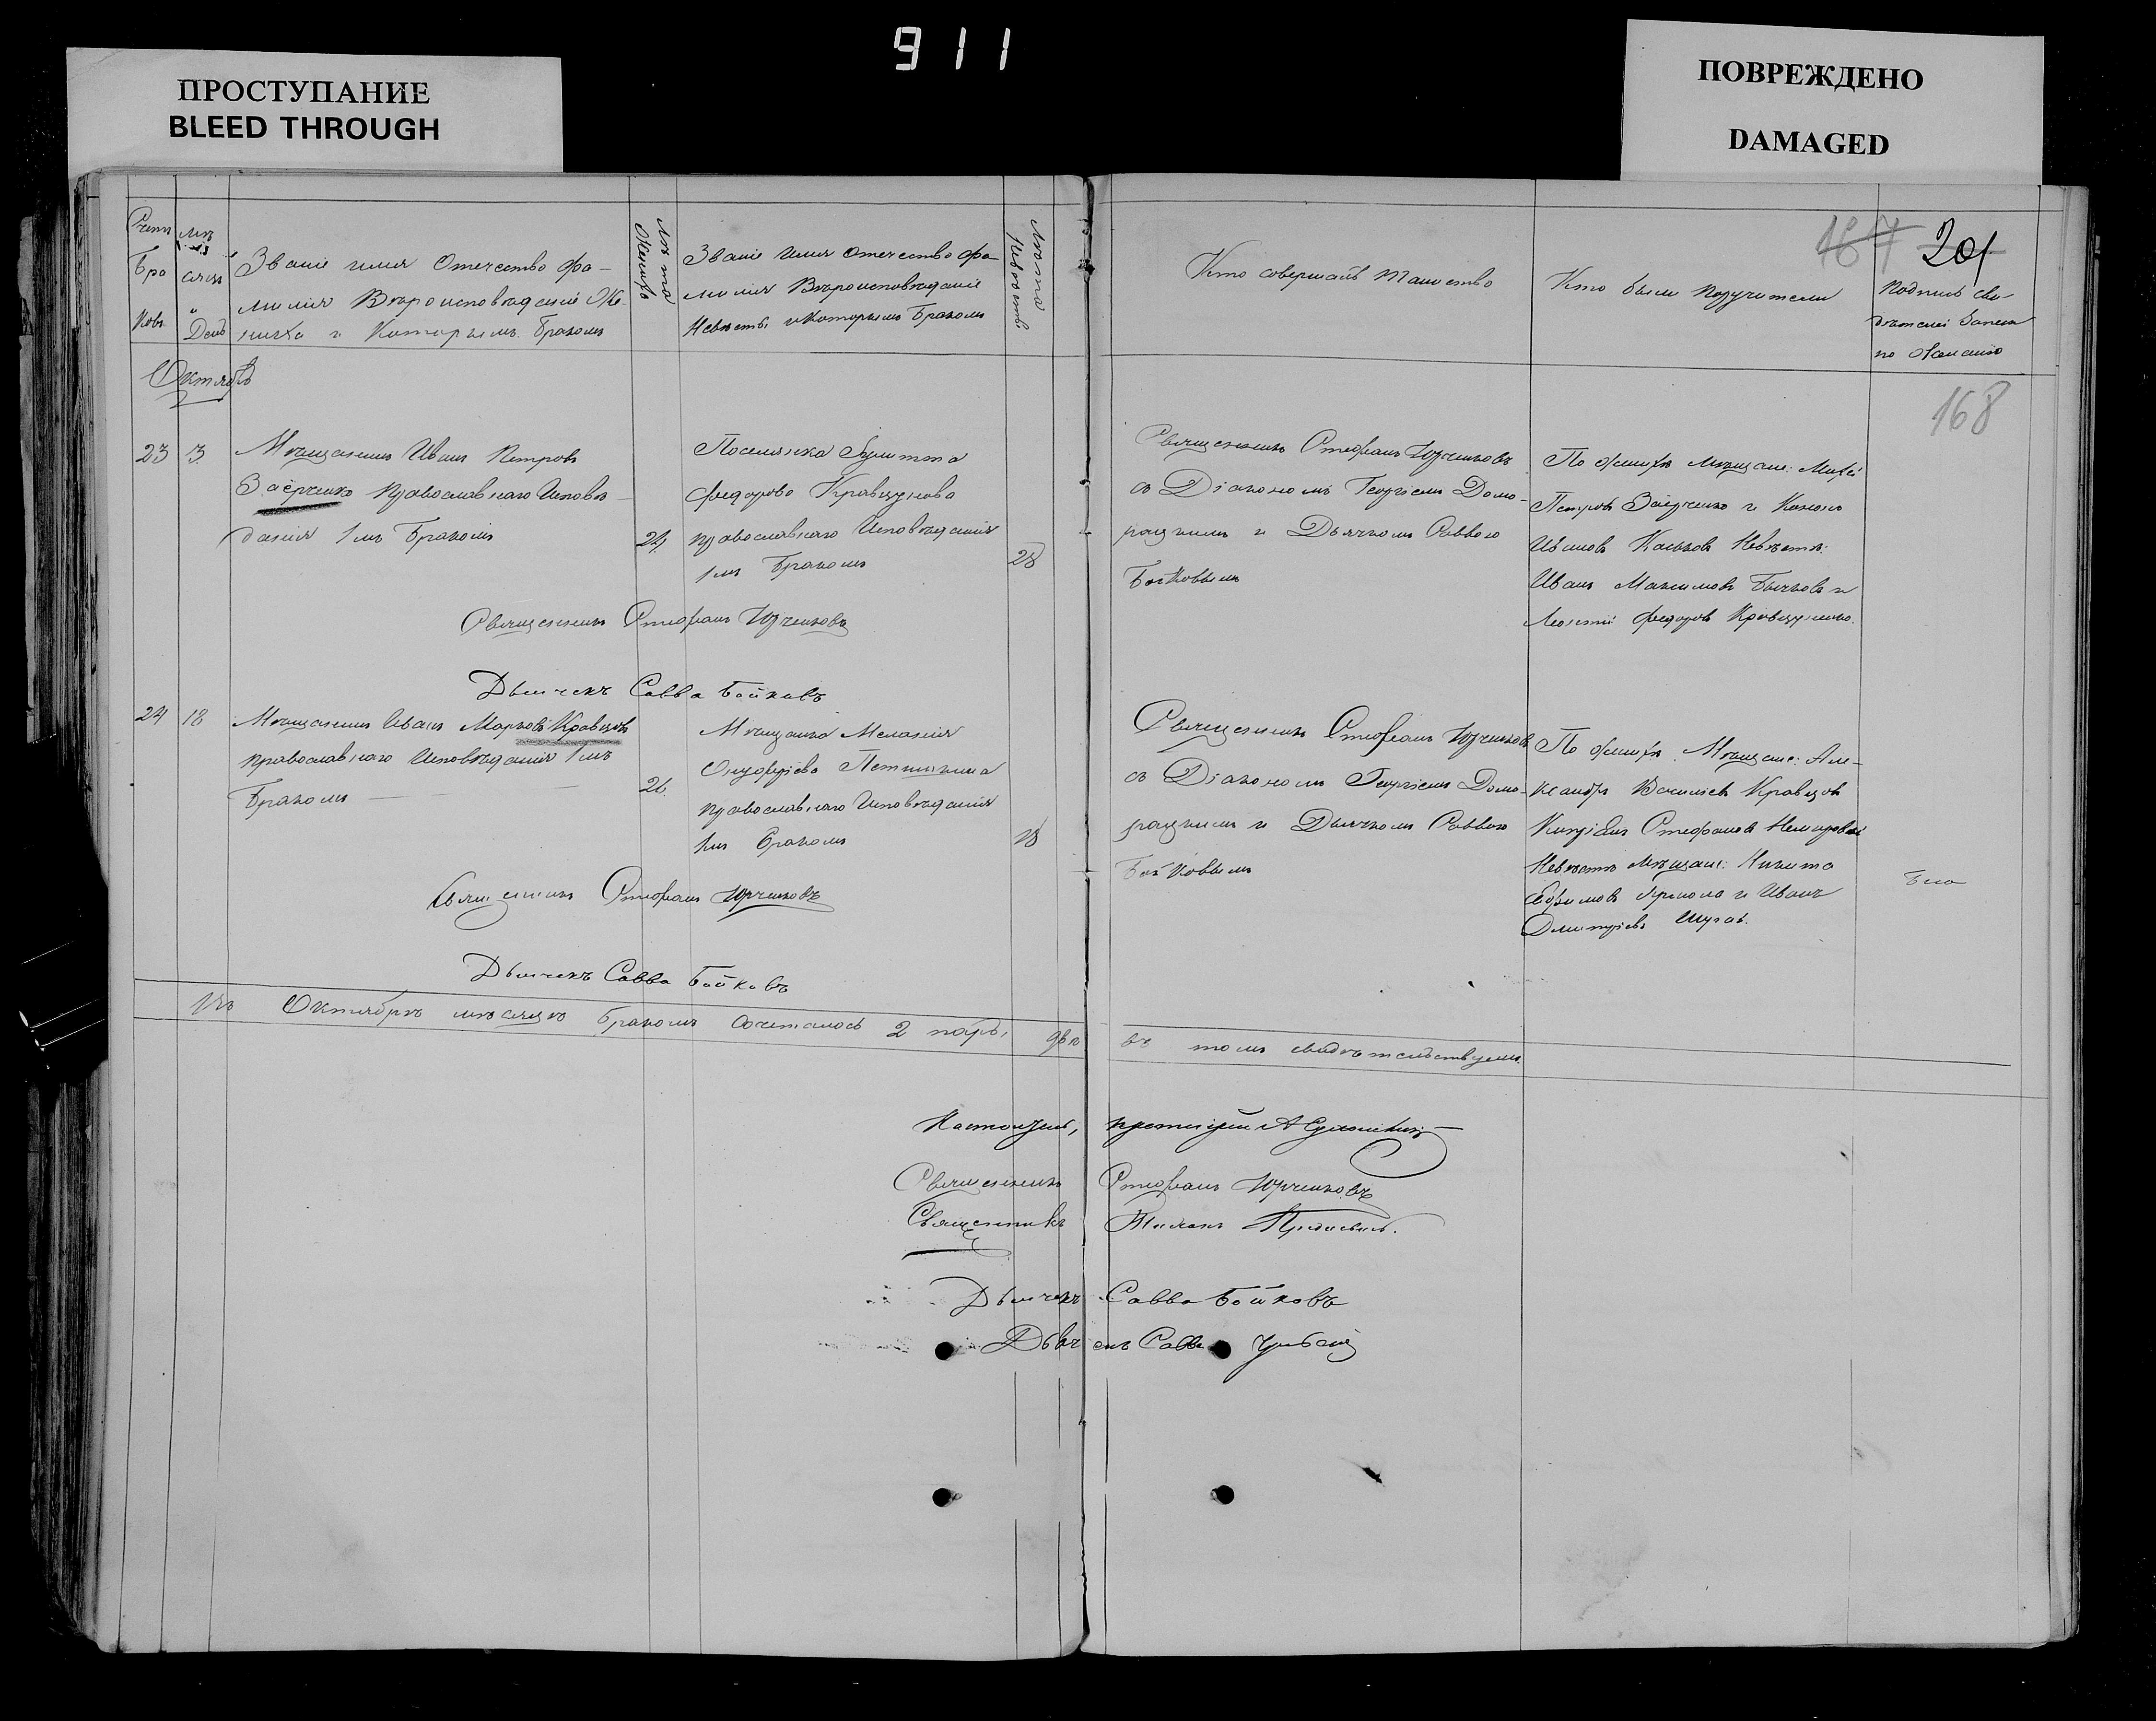 911
ПРОСТУПАНИЕ
BLEED THROUGH
ПОВРЕЖДЕНО
DAMAGED
167 201
Счетъ Бра ковъ
Мѣ сяцъ и День
Званіе имя Отечество фа-
милія Вѣроисповѣданіе Же-
ниха и Которымъ Бракомъ
Лѣта Жениха
Званіе имя Отечество фа-
милія Вѣроисповѣданіе
Невѣсты и которымъ Бракомъ
Лѣта Невѣсты
Кто совершалъ Таинство
Кто были поручители
Подпись сви-
дѣтелей записи
по желанію
168
Октябрь
23 3.
Мѣщанинъ Иванъ Петровъ
Заерченко православнаго Исповѣ-
данія 1мъ Бракомъ
24
Поселянка
Федорова Кравцунова
православнаго Исповѣданія
1мъ Бракомъ
28
Священникъ Стефанъ Юрченковъ
съ Діакономъ Георгіемъ Домо-
рацкимъ и Дьячкомъ Саввою
Бойковымъ
По женихѣ мѣщане:
Петровъ Заерченко и
Ивановъ невѣстѣ:
Иванъ Максимовъ Бычковъ и
Леонтій Федоровъ
Священникъ Стефанъ Юрченковъ
Дьячекъ Савва Бойковъ
24 18
Мѣщанинъ Иванъ Марковъ Кравцовъ
православнаго Исповѣданія 1мъ
Бракомъ
21.
Мѣщанка Меланія
Онуфріева
православнаго Исповѣданія
1мъ Бракомъ
18
Священникъ Стефанъ Юрченковъ
съ Діакономъ Георгіемъ Домо-
рацкимъ и Дьячкомъ Саввою
Бойковымъ
По женихѣ Мѣщане: Але-
ксандръ Васильевъ Кравцовъ
Кипріянъ Стефановъ
Невѣстѣ мѣщане: Никита
Ефимовъ и Иванъ
Дмитріевъ
Священникъ Стефанъ Юрченковъ
Дьячекъ Савва Бойковъ
Въ Октябрѣ мѣсяцѣ бракомъ сочеталось 2 пары, двѣ въ томъ свидѣтельствуемъ.
Настоятель, протоіерей А
Священникъ Стефанъ Юрченковъ
Священникъ
Дьячекъ Савва Бойковъ
Дьячекъ Савва